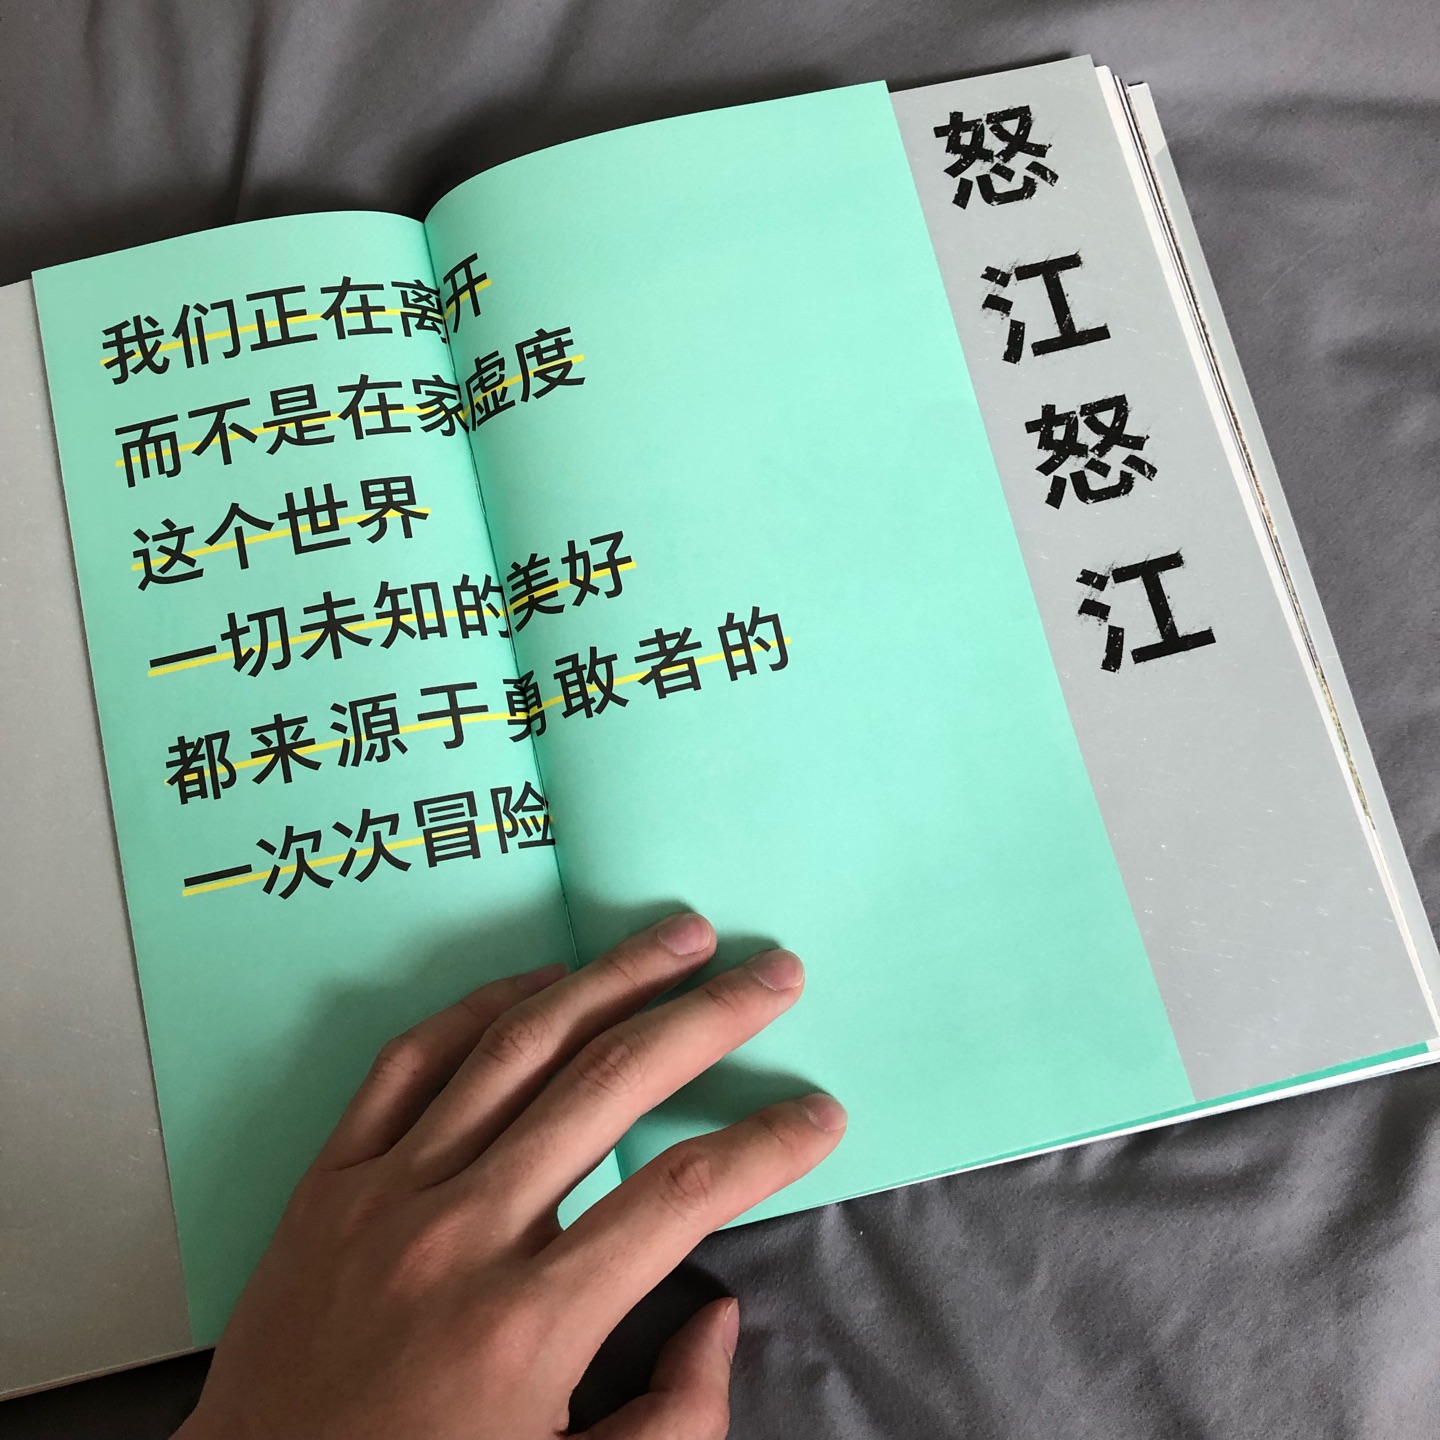 我们正在离开
而不是在家虚度
这个世界
一切未知的美好
都来源于勇敢者的
一次次冒险
怒江怒江